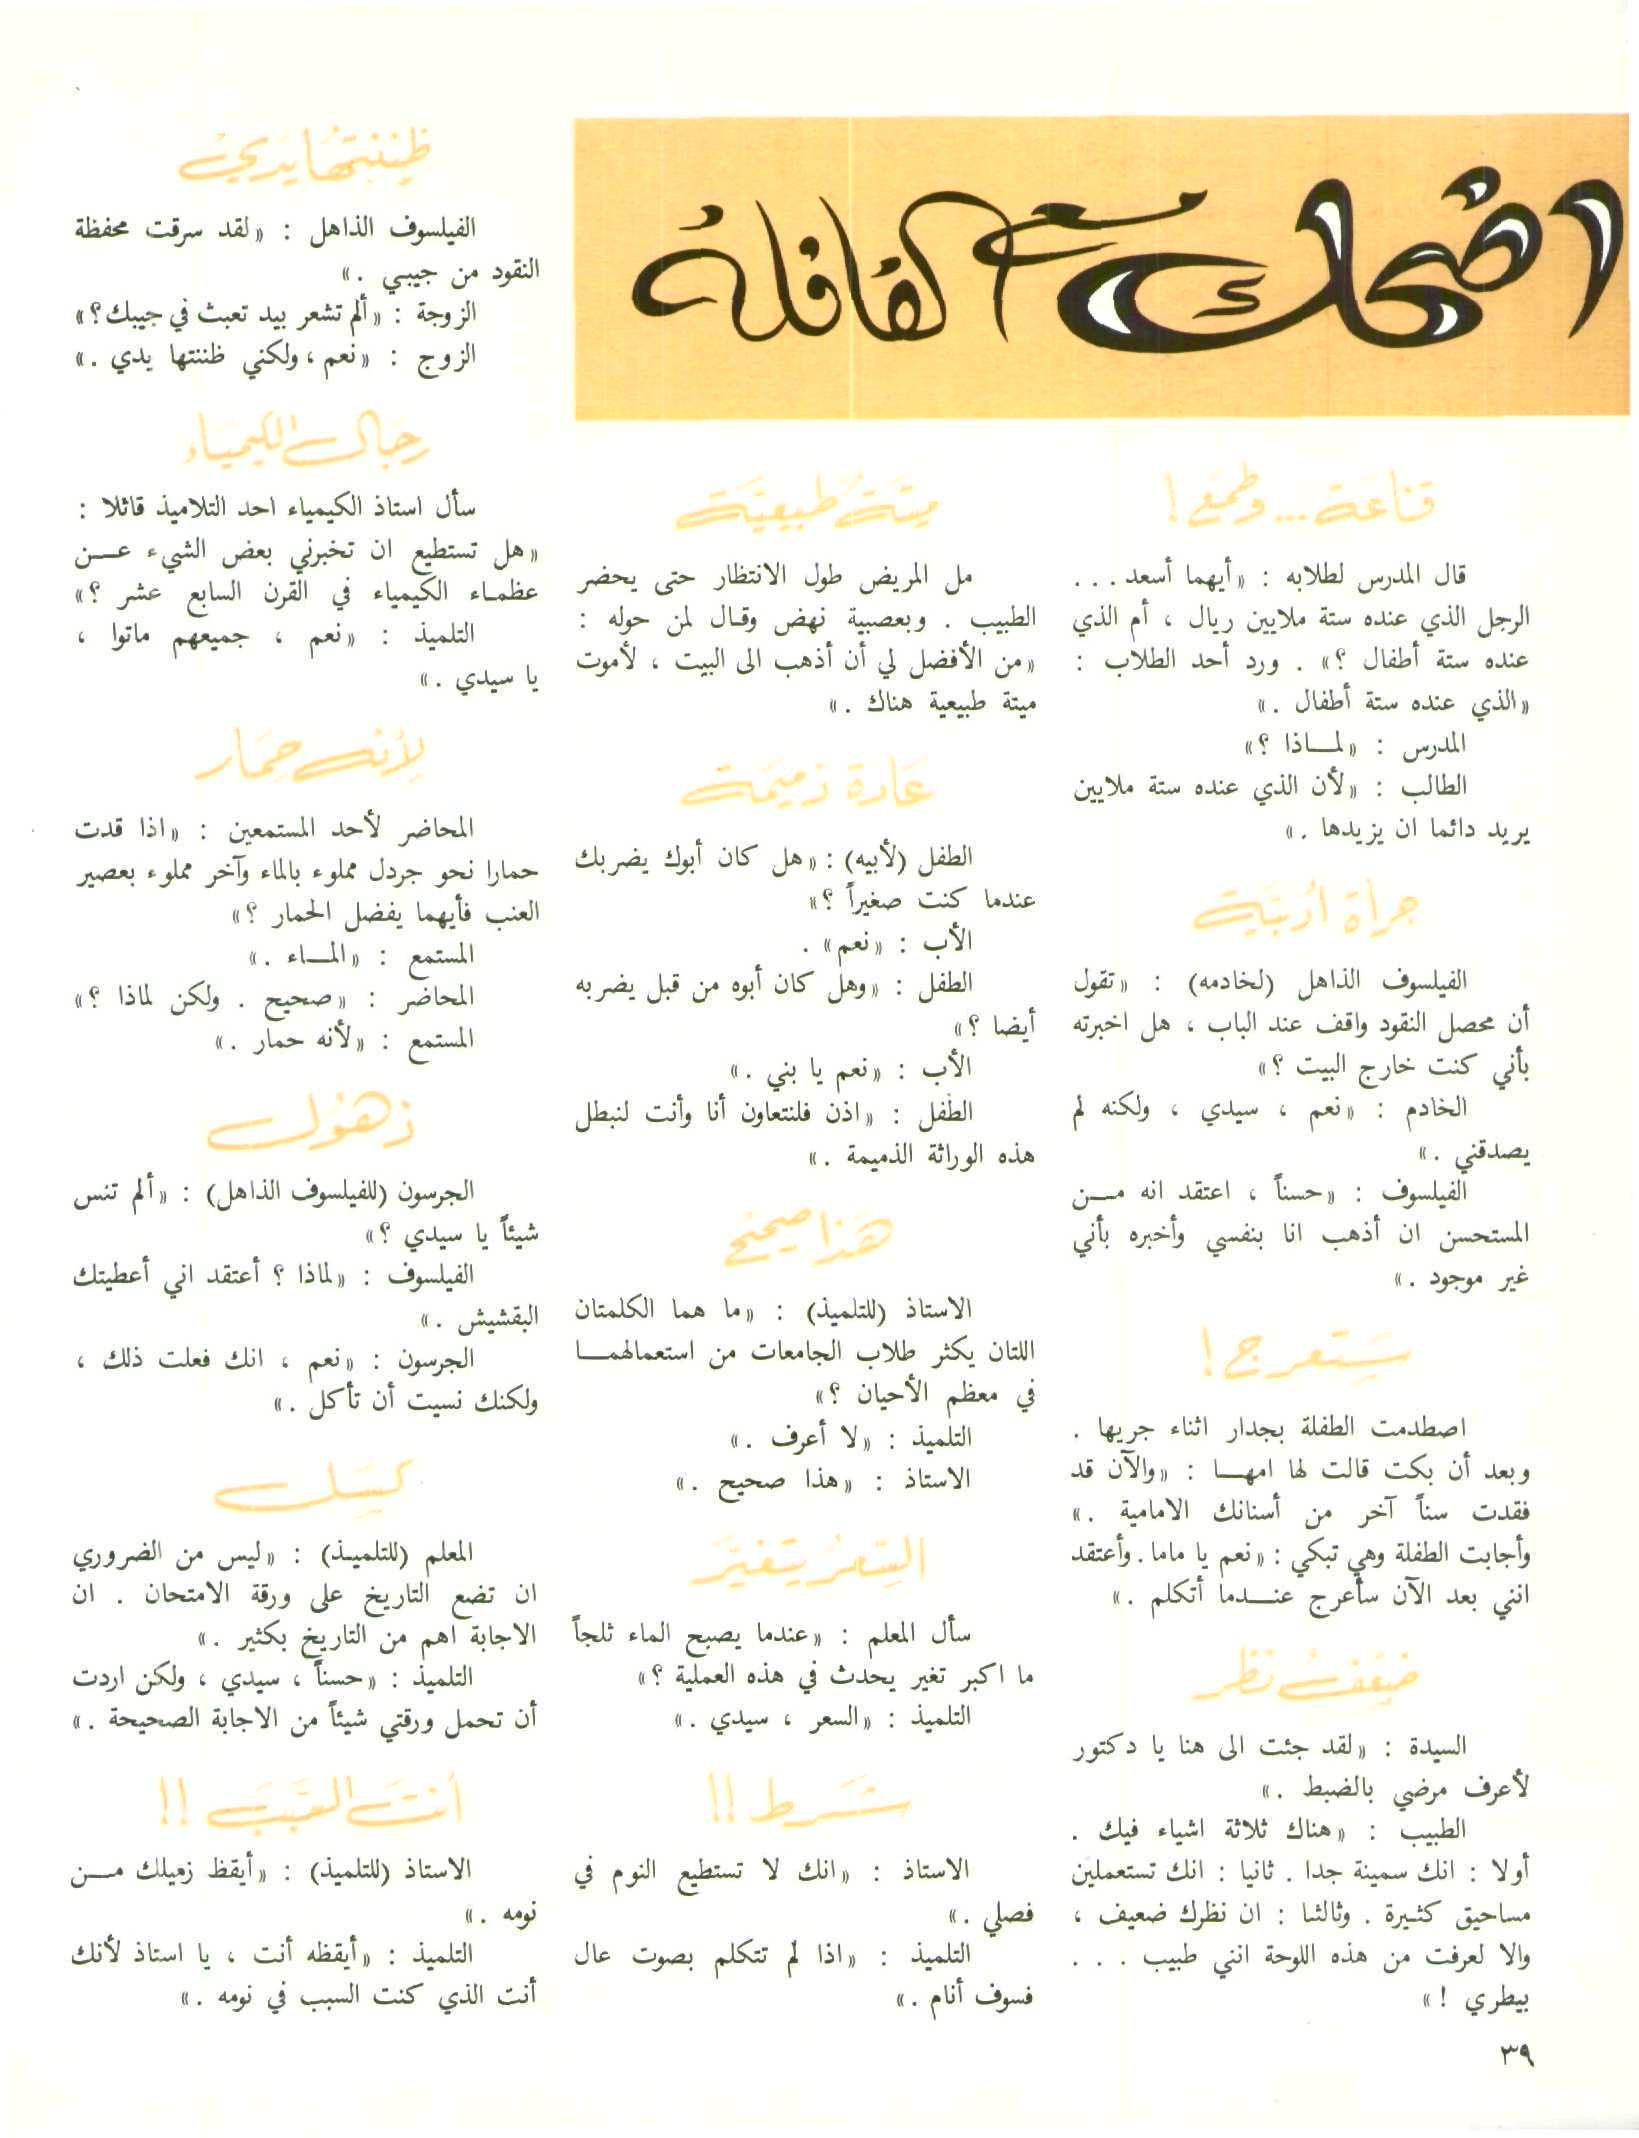 اضحك مع القافلة
قناعة... وطمع !
قال المدرس لطلابه : «أيهما أسعد ...
الرجل الذي عنده ستة ملايين ريال ، أم الذي
عنده ستة أطفال ؟» . ورد أحد الطلاب :
«الذي عنده ستة أطفال .»
المدرس : «لمـــاذا ؟»
الطالب : «لأن الذي عنده ستة ملايين
يريد دائما ان يزيدها .»
جرأة أدبية
الفيلسوف الذاهل (لخادمه) : «تقول
أن محصل النقود واقف عند الباب ، هل اخبرته
بأني كنت خارج البيت ؟»
الخادم : «نعم ، سيدي ، ولكنه لم
يصدقني .»
الفيلسوف : «حسناً ، اعتقد انه مــن
المستحسن ان أذهب انا بنفسي وأخبره بأني
غير موجود .»
ستعرج !
اصطدمت الطفلة بجدار اثناء جريها .
وبعد أن بكت قالت لها امهــا : «والآن قد
فقدت سناً آخر من أسنانك الامامية .»
وأجابت الطفلة وهي تبكي : «نعم يا ماما . وأعتقد
انني بعد الآن سأعرج عنـــدما أتكلم .»
ضعف نظر
السيدة : «لقد جئت الى هنا يا دكتور
لأعرف مرضي بالضبط .»
الطبيب : «هناك ثلاثة اشياء فيك .
أولا : انك سمينة جدا . ثانيا : انك تستعملين
مساحيق كثيرة . وثالثا : ان نظرك ضعيف ،
والا لعرفت من هذه اللوحة انني طبيب ...
بيطري !»
ميتة طبيعية
مل المريض طول الانتظار حتى يحضر
الطبيب . وبعصبية نهض وقال لمن حوله :
«من الأفضل لي أن أذهب الى البيت ، لأموت
ميتة طبيعية هناك .»
عادة ذميمة
الطفل (لأبيه) : «هل كان أبوك يضربك
عندما كنت صغيراً ؟»
الأب : «نعم» .
الطفل : «وهل كان أبوه من قبل يضربه
أيضا ؟»
الأب : «نعم يا بني .»
الطفل : «اذن فلنتعاون أنا وأنت لنبطل
هذه الوراثة الذميمة .»
هذا صحيح
الاستاذ (للتلميذ) : «ما هما الكلمتان
اللتان يكثر طلاب الجامعات من استعمالهمــا
في معظم الأحيان ؟»
التلميذ : «لا أعرف .»
الاستاذ : «هذا صحيح .»
السعر يتغير
سأل المعلم : «عندما يصبح الماء ثلجاً
ما اكبر تغير يحدث في هذه العملية ؟»
التلميذ : «السعر ، سيدي .»
شرط !!
الاستاذ : «انك لا تستطيع النوم في
فصلي .»
التلميذ : «اذا لم تتكلم بصوت عال
فسوف أنام .»
ظننتها يدي
الفيلسوف الذاهل : «لقد سرقت محفظة
النقود من جيبي .»
الزوجة : «ألم تشعر بيد تعبث في جيبك؟»
الزوج : «نعم ، ولكني ظننتها يدي .»
رجال الكيمياء
سأل استاذ الكيمياء احد التلاميذ قائلا :
«هل تستطيع ان تخبرني بعض الشيء عـــن
عظمـاء الكيمياء في القرن السابع عشر ؟»
التلميذ : «نعم ، جميعهم ماتوا ،
يا سيدي .»
لأنه حمار
المحاضر لأحد المستمعين : «اذا قدت
حمارا نحو جردل مملوء بالماء وآخر مملوء بعصير
العنب فأيهما يفضل الحمار ؟»
المستمع : «المـــاء .»
المحاضر : «صحيح . ولكن لماذا ؟»
المستمع : «لأنه حمار .»
ذهول
الجرسون (للفيلسوف الذاهل) : «ألم تنس
شيئاً يا سيدي ؟»
الفيلسوف : «لماذا ؟ أعتقد اني أعطيتك
البقشيش .»
الجرسون : «نعم ، انك فعلت ذلك ،
ولكنك نسيت أن تأكل .»
كسل
المعلم (للتلميـذ) : «ليس من الضروري
ان تضع التاريخ على ورقة الامتحان . ان
الاجابة اهم من التاريخ بكثير .»
التلميذ : «حسناً ، سيدي ، ولكن اردت
أن تحمل ورقتي شيئاً من الاجابة الصحيحة .»
أنت السبب !!
الاستاذ (للتلميذ) : «أيقظ زميلك مـــن
نومه .»
التلميذ : «أيقظه أنت ، يا استاذ لأنك
أنت الذي كنت السبب في نومه .»
٣٩